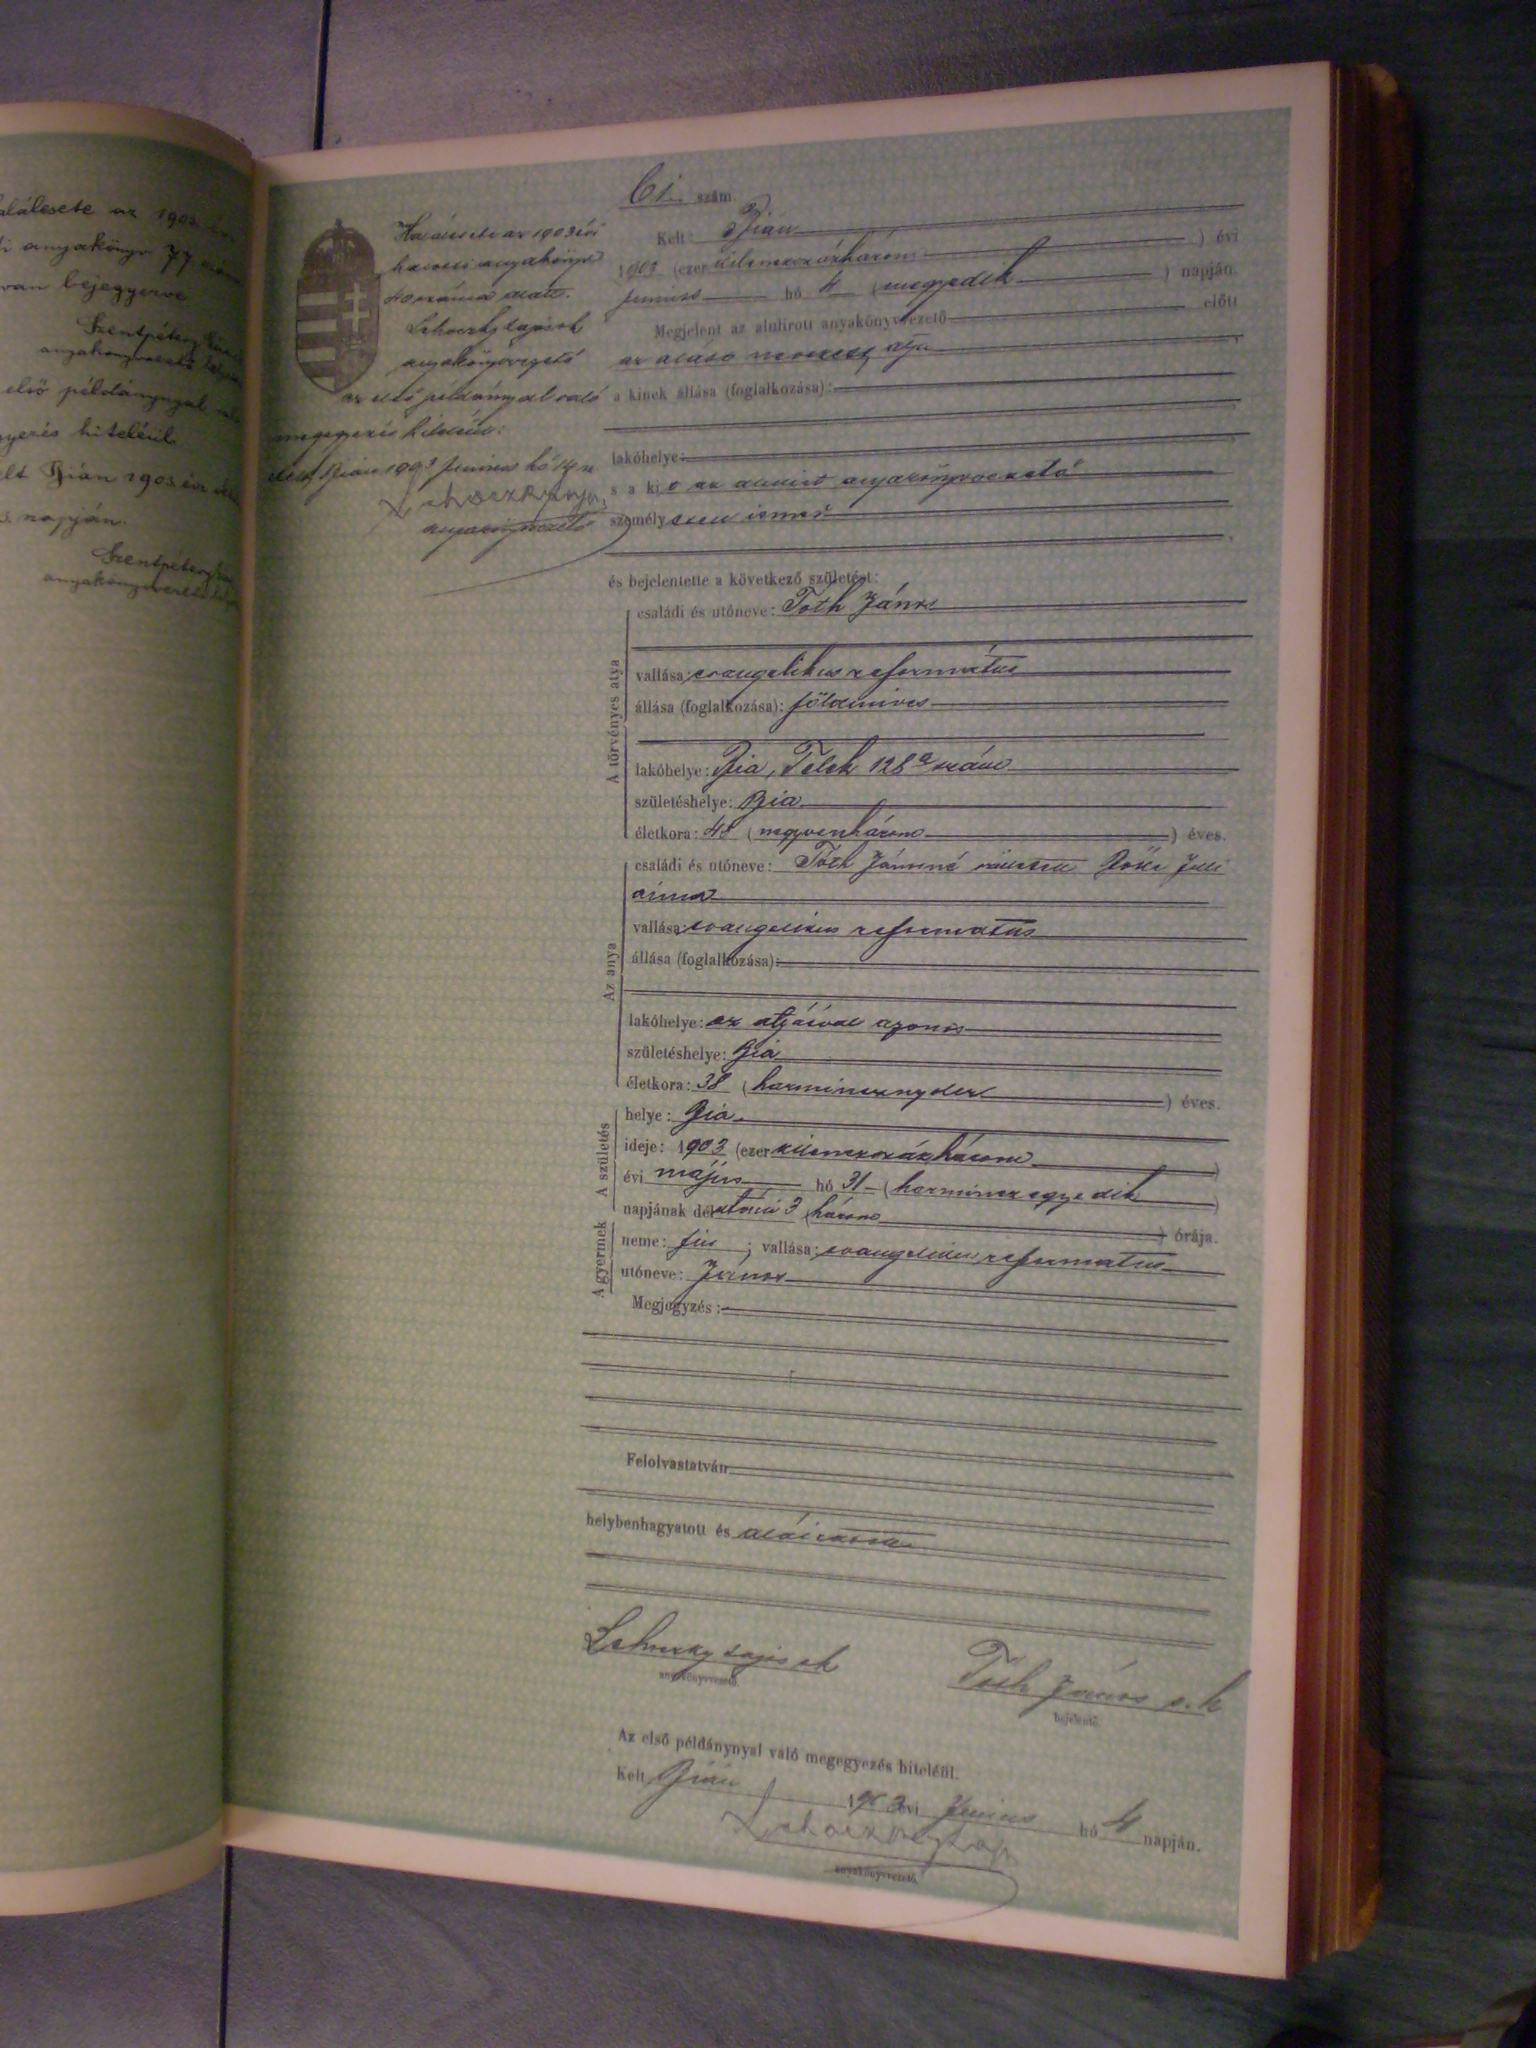 alálesete az 1903 évi
i anyakönyv 77 száma
van bejegyezve
Szentpétery
anyakönyvvezető
első példánynyal való
gyezés hiteléül.
elt Bián 1903. évi
napján.
Szentpétery
anyakönyvvezető
Halálesete az 1903 évi
halotti anyakönyv
40 száma alatt.
Lehoczky Lajos sk
anyakönyvvezető
az első példánynyal való
megegyezés hiteléül:
Kelt Bián 1903 junius hó 14 n
Lehoczky Lajos
anyakönyvvezető
61. szám.
Kelt: Bián
1903 (ezer kilenczszázhárom ) évi
junius hó 4 (negyedik ) napján.
Megjelent az alulírott anyakönyvvezető előtt
az alább nevezett atya
a kinek állása (foglalkozása):
lakóhelye:
s a kit az alulírt anyakönyvvezető
személyesen ismer
és bejelentette a következő születést:
A törvényes atya
családi és utóneve: Tóth János
vallása: evangelikus református
állása (foglalkozása): földmives
lakóhelye: Bia, Telek 128a szám
születéshelye: Bia
életkora: 43 (negyvenhárom ) éves.
Az anya
családi és utóneve: Tóth Jánosné született Juli
ánna
vallása: evangelikus református
állása (foglalkozása):
lakóhelye: az atyáéval azonos
születéshelye: Bia
életkora: 38 (harmincznyolcz ) éves.
A születés
helye: Bia
ideje: 1903 (ezer kilenczszázhárom )
évi május hó 31 (harminczegyedik )
napjának délutáni 3 (három ) órája.
A gyermek
neme: fiú ; vallása: evangelikus református
utóneve: János
Megjegyzés:
Felolvastatván
helybenhagyatott és aláíratott
Lehoczky Lajos sk
anyakönyvvezető.
Tóth János s.k
bejelentő.
Az első példánynyal való megegyezés hiteléül.
Kelt Bián 1903 évi Junius hó 4 napján.
Lehoczky Lajos
anyakönyvvezető.